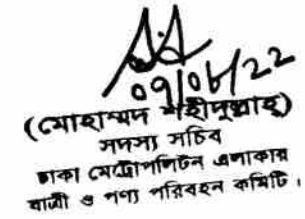 ০৭/০৬/২২
(মোহাম্মদ শহীদুল্লাহ)
সদস্য সচিব
ঢাকা মেট্রোপলিটন এলাকায়
যাত্রী ও পণ্য পরিবহন কমিটি।